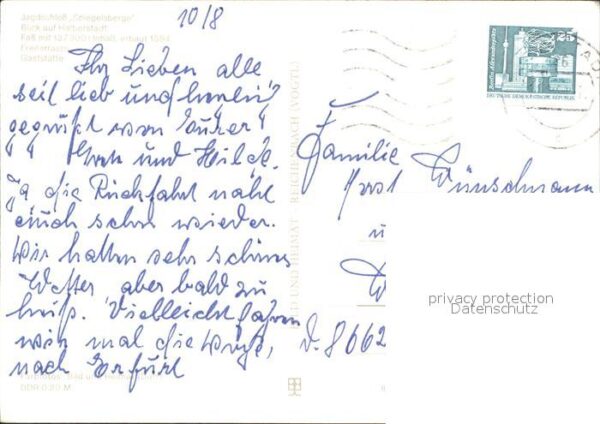 10/8
Jagdschloß "Spiegelsberge"
Blick auf Halberstadt
Faß mit 132 000 l Inhalt, erbaut 1594
Gaststätte
Ihr Lieben alle
seit lieb und
gegrüßt von Eurer
" " und
Ja die Rückfahrt naht
auch schon wieder.
Wir hatten sehr schönes
Wetter aber bald zu
heiß. Vielleicht fahren
wir mal die Woche,
nach Erfurt
BILD UND HEIMAT REICHENBACH (VOGTL)
DDR 0,20 M
Familie
Horst Wünschmann
u
D. 8662
25
Berlin, Alexanderplatz
DEUTSCHE DEMOKRATISCHE REPUBLIK
privacy protection
Datenschutz